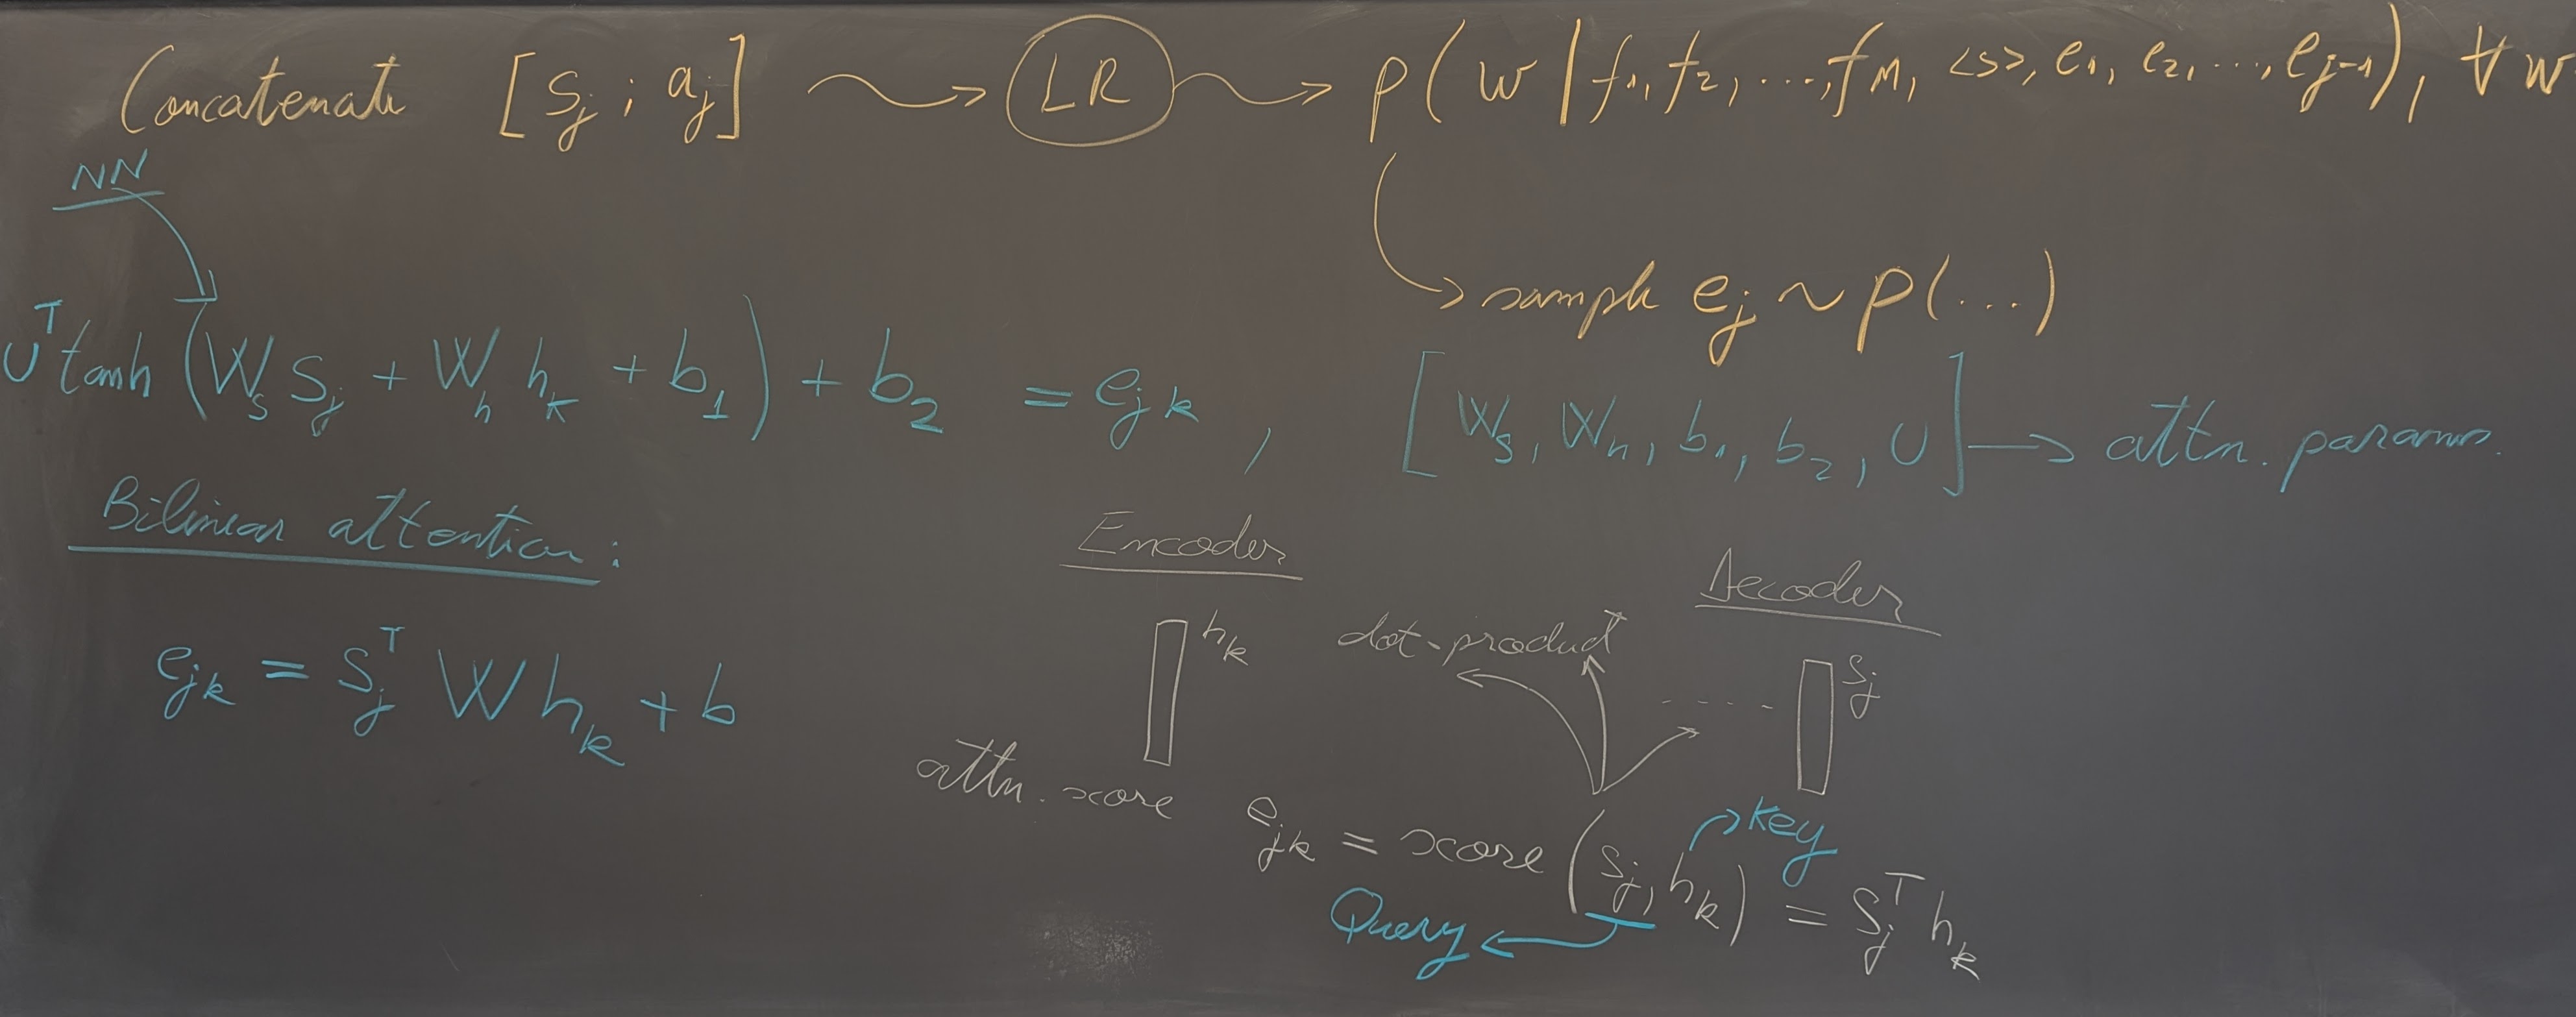 Concatenate [s_j ; a_j] ⇝ LR ⇝ p(w | f_1, f_2, ..., f_M, <s>, e_1, e_2, ..., e_{j-1}), ∀ w
NN
→ sample e_j ~ p(...)
U^T tanh (W_s s_j + W_h h_k + b_1) + b_2 = e_{jk}, [W_s, W_h, b_1, b_2, U] → attn. params.
Bilinear attention:
e_{jk} = s_j^T W h_k + b
Encoder
Decoder
h_k
dot-product
s_j
attn. score
e_{jk} = score (s_j, h_k) = s_j^T h_k
key
Query